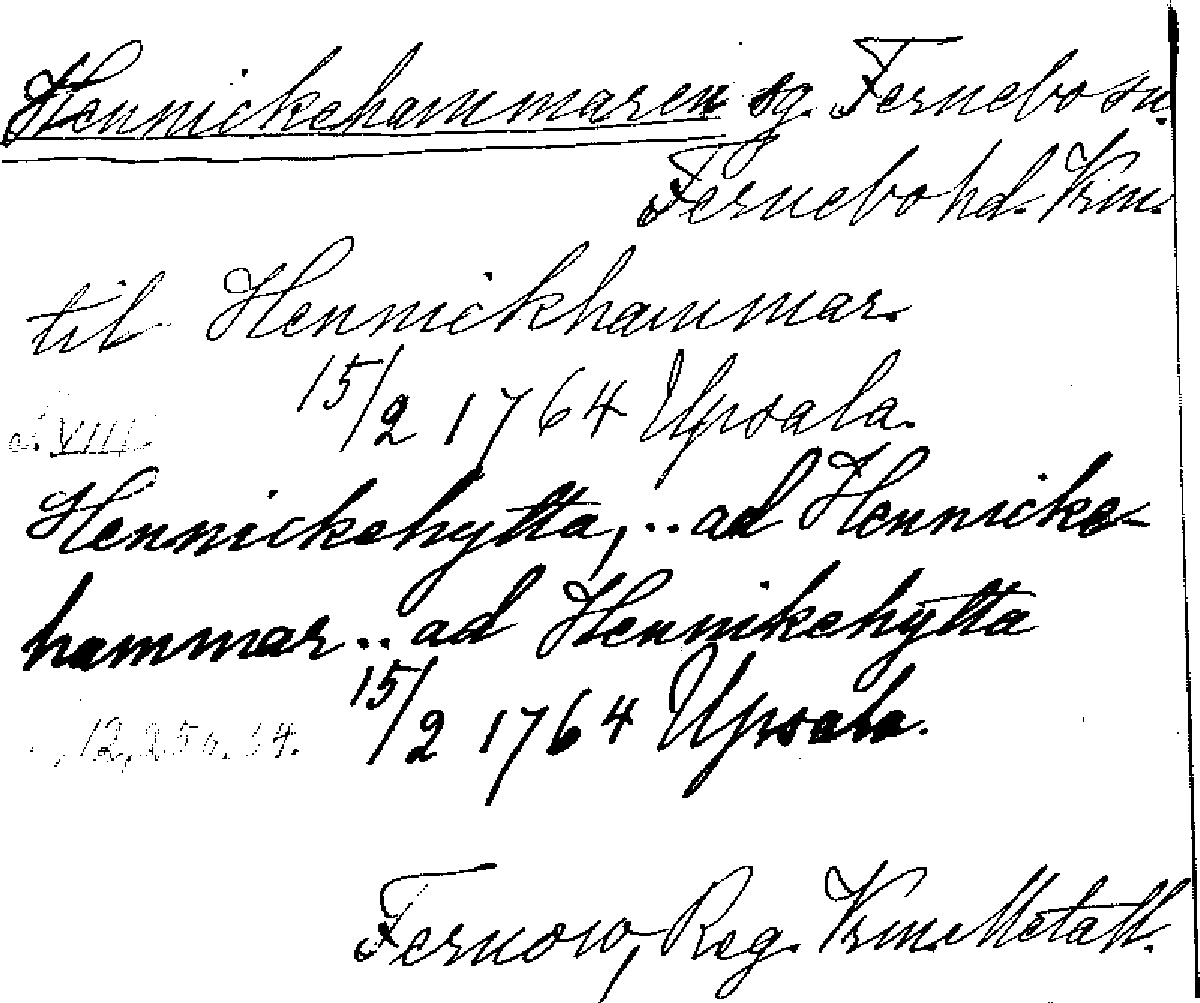 Hennickehammaren sg. Fernebo sn.
Fernebo hd. Vrm.
til Hennickhammar.
15/2 1764 Upsala.
s. VIII.
Hennickehytta, .. ad Hennicke-
hammar .. ad Hennikehytta
15/2 1764 Upsala.
Fernow, Reg. Vrm. Metall.